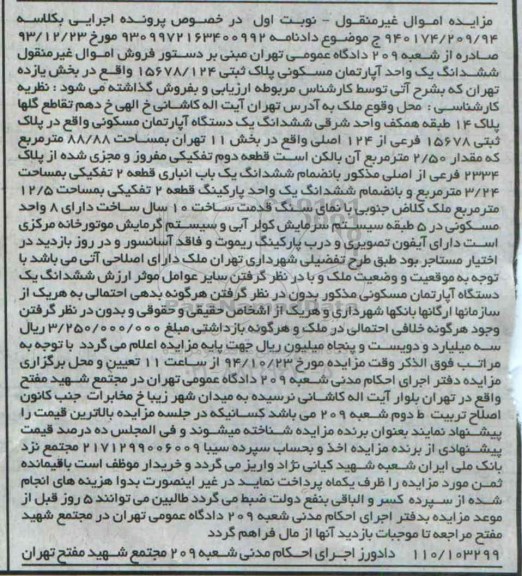 مزایده اموال غیرمنقول - نوبت اول در خصوص پرونده اجرایی بکلاسه
۹۴۰۱۷۴/۲۰۹/۹۴ ج موضوع دادنامه ۹۳۰۹۹۷۲۱۶۳۴۰۰۹۹۲ مورخ ۹۳/۱۲/۲۳
صادره از شعبه ۲۰۹ دادگاه عمومی تهران مبنی بر دستور فروش اموال غیرمنقول
ششدانگ یک واحد آپارتمان مسکونی پلاک ثبتی ۱۵۶۷۸/۱۲۴ واقع در بخش یازده
تهران که بشرح آتی توسط کارشناس مربوطه ارزیابی و بفروش گذاشته می شود : نظریه
کارشناسی : محل وقوع ملک به آدرس تهران آیت اله کاشانی خ الهی خ دهم تقاطع گلها
پلاک ۱۴ طبقه همکف واحد شرقی ششدانگ یک دستگاه آپارتمان مسکونی واقع در پلاک
ثبتی ۱۵۶۷۸ فرعی از ۱۲۴ اصلی واقع در بخش ۱۱ تهران بمساحت ۸۸/۸۸ مترمربع
که مقدار ۲/۵۰ مترمربع آن بالکن است قطعه دوم تفکیکی مفروز و مجزی شده از پلاک
۲۳۳۴ فرعی از اصلی مذکور بانضمام ششدانگ یک باب انباری قطعه ۲ تفکیکی بمساحت
۳/۲۴ مترمربع و بانضمام ششدانگ یک واحد پارکینگ قطعه ۲ تفکیکی بمساحت ۱۲/۵
مترمربع ملک کلاض جنوبی با نمای سنگ قدمت ساخت ۱۰ سال ساخت دارای ۸ واحد
مسکونی در ۵ طبقه سیستم سرمایش کولر آبی و سیستم گرمایش موتورخانه مرکزی
است دارای آیفون تصویری و درب پارکینگ ریموت و فاقد آسانسور و در روز بازدید در
اختیار مستاجر بود طبق طرح تفضیلی شهرداری تهران ملک دارای اصلاحی آتی می باشد با
توجه به موقعیت و وضعیت ملک و با در نظر گرفتن سایر عوامل موثر ارزش ششدانگ یک
دستگاه آپارتمان مسکونی مذکور بدون در نظر گرفتن هرگونه بدهی احتمالی به هریک از
سازمانها ارگانها بانکها شهرداری و هریک از اشخاص حقیقی و حقوقی و بدون در نظر گرفتن
وجود هرگونه خلافی احتمالی در ملک و هرگونه بازداشتی مبلغ ۳/۲۵۰/۰۰۰/۰۰۰ ریال
سه میلیارد و دویست و پنجاه میلیون ریال جهت پایه مزایده اعلام می گردد با توجه به
مراتب فوق الذکر وقت مزایده مورخ ۹۴/۱۰/۲۳ از ساعت ۱۱ تعیین و محل برگزاری
مزایده دفتر اجرای احکام مدنی شعبه ۲۰۹ دادگاه عمومی تهران در مجتمع شهید مفتح
واقع در تهران بلوار آیت اله کاشانی نرسیده به میدان شهر زیبا خ مخابرات جنب کانون
اصلاح تربیت ط دوم شعبه ۲۰۹ می باشد کسانیکه در جلسه مزایده بالاترین قیمت را
پیشنهاد نمایند بعنوان برنده مزایده شناخته میشوند و فی المجلس ده درصد قیمت
پیشنهادی از برنده مزایده اخذ و بحساب سپرده سیبا ۲۱۷۱۲۹۹۰۰۶۰۰۹ مجتمع نزد
بانک ملی ایران شعبه شهید کیانی نژاد واریز می گردد و خریدار موظف است باقیمانده
ثمن مورد مزایده را ظرف یکماه پرداخت نماید در غیر اینصورت بدوا هزینه های انجام
شده از سپرده کسر و الباقی بنفع دولت ضبط می گردد طالبین می توانند ۵ روز قبل از
موعد مزایده بدفتر اجرای احکام مدنی شعبه ۲۰۹ دادگاه عمومی تهران در مجتمع شهید
مفتح مراجعه تا موجبات بازدید آنها از مال فراهم گردد
۱۱۰/۱۰۳۲۹۹ دادورز اجرای احکام مدنی شعبه ۲۰۹ مجتمع شهید مفتح تهران